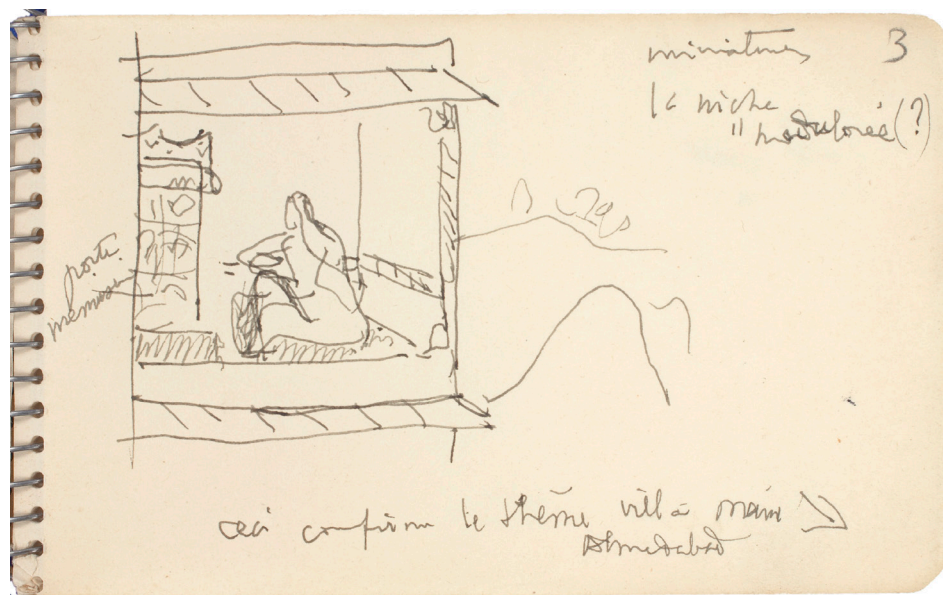 miniatures
3
la niche
" modulorée (?)
porte
ceci confirme le thème villa mairie
Ahmedabad